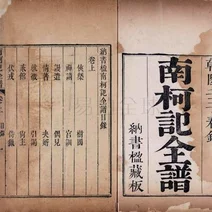 南柯記全譜
納書楹藏板
納書楹南柯記全譜目錄
卷上
俠槩 樹國
禪請 宮訓
謾遣 偶見
情著 決婿
就徵 引謁
貳館
伏戎 侍獵